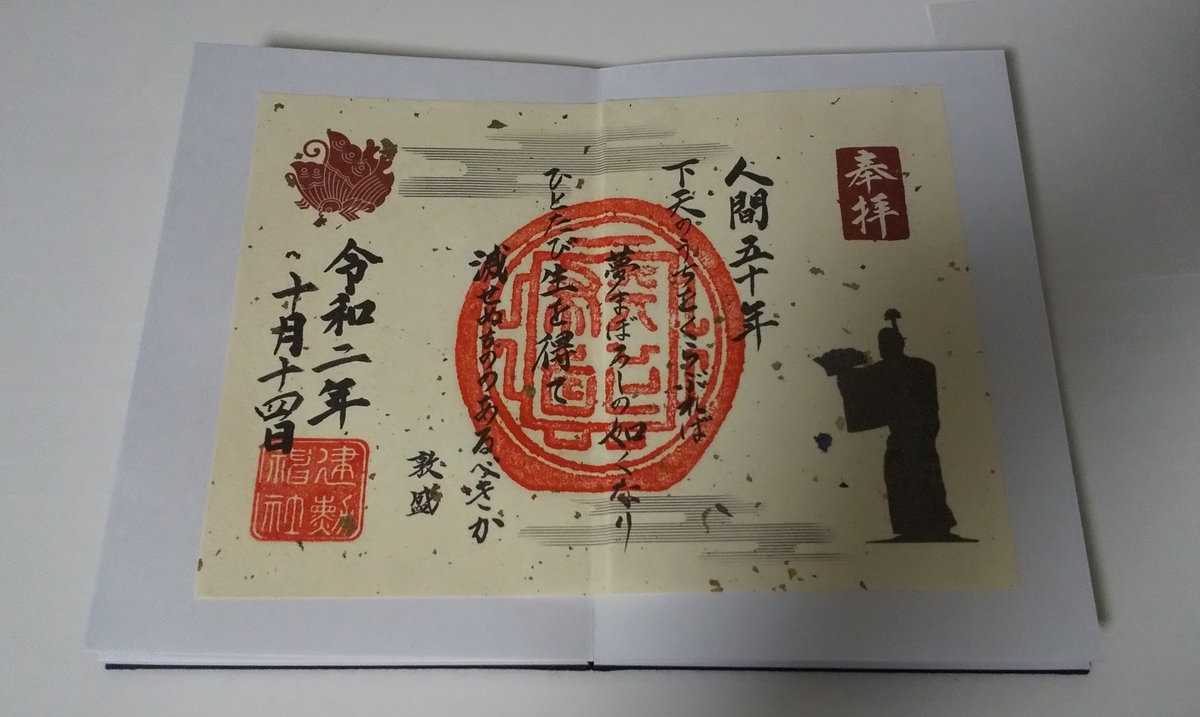 奉拝
人間五十年
下天のうちをくらぶれば
夢まぼろしの如くなり
ひとたび生を得て
滅せぬものあるべきか
敦盛
令和二年
十月十四日
建勲
神社